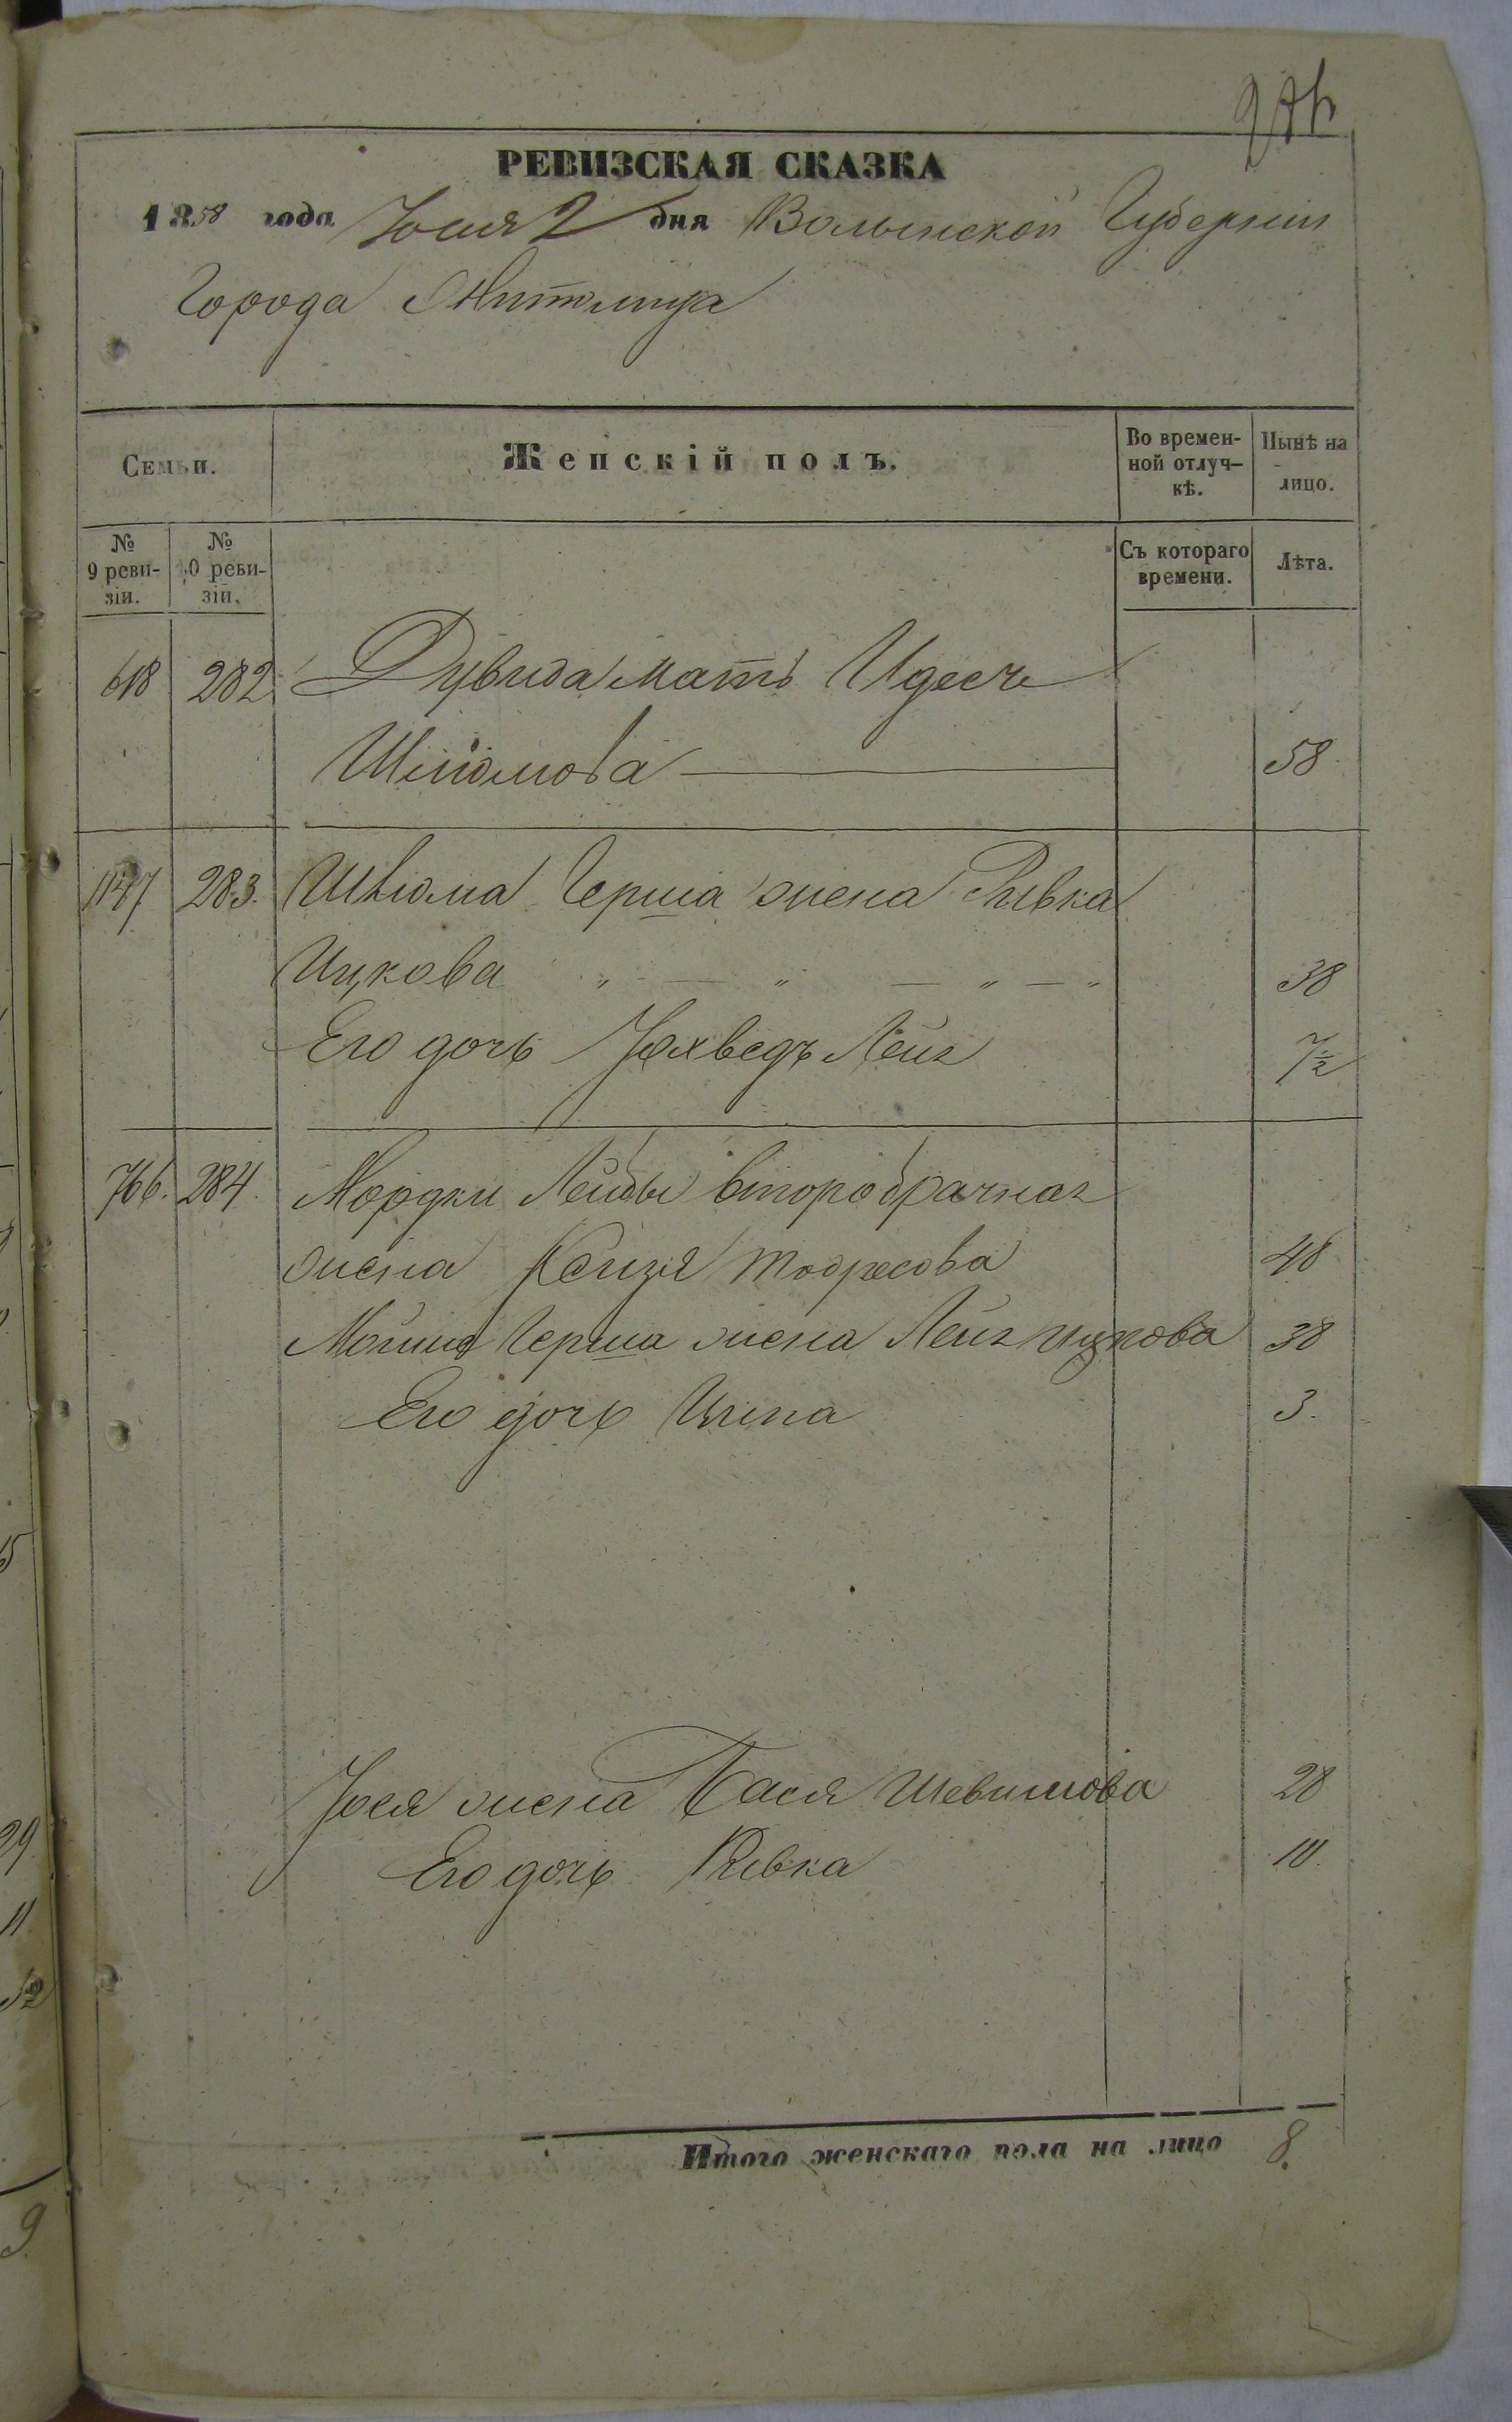 РЕВИЗСКАЯ СКАЗКА
1858 года Юня 2 дня Волынской Губернии
Города Житомира
Семьи.
Женскій полъ.
Во времен-
ной отлуч-
кѣ.
Нынѣ на
лицо.
№
9 реви-
зіи.
№
10 реви-
зіи.
Съ котораго
времени.
Лѣта.
618 282 Дувида мать Идесъ
Шліомова 58
1147 283. Шліома Герша жена Рывка
Ицкова " — " — " — " 38
Его дочь Юхведъ Лея 7½
766. 284. Мордки Лейбы второбрачная
жена Тодресова 48
Мошка Герша жена Лея Ицкова 38
Его дочь 3.
Юся жена Бася 28
Его дочь Ривка 10
Итого женскаго пола на лицо 8.